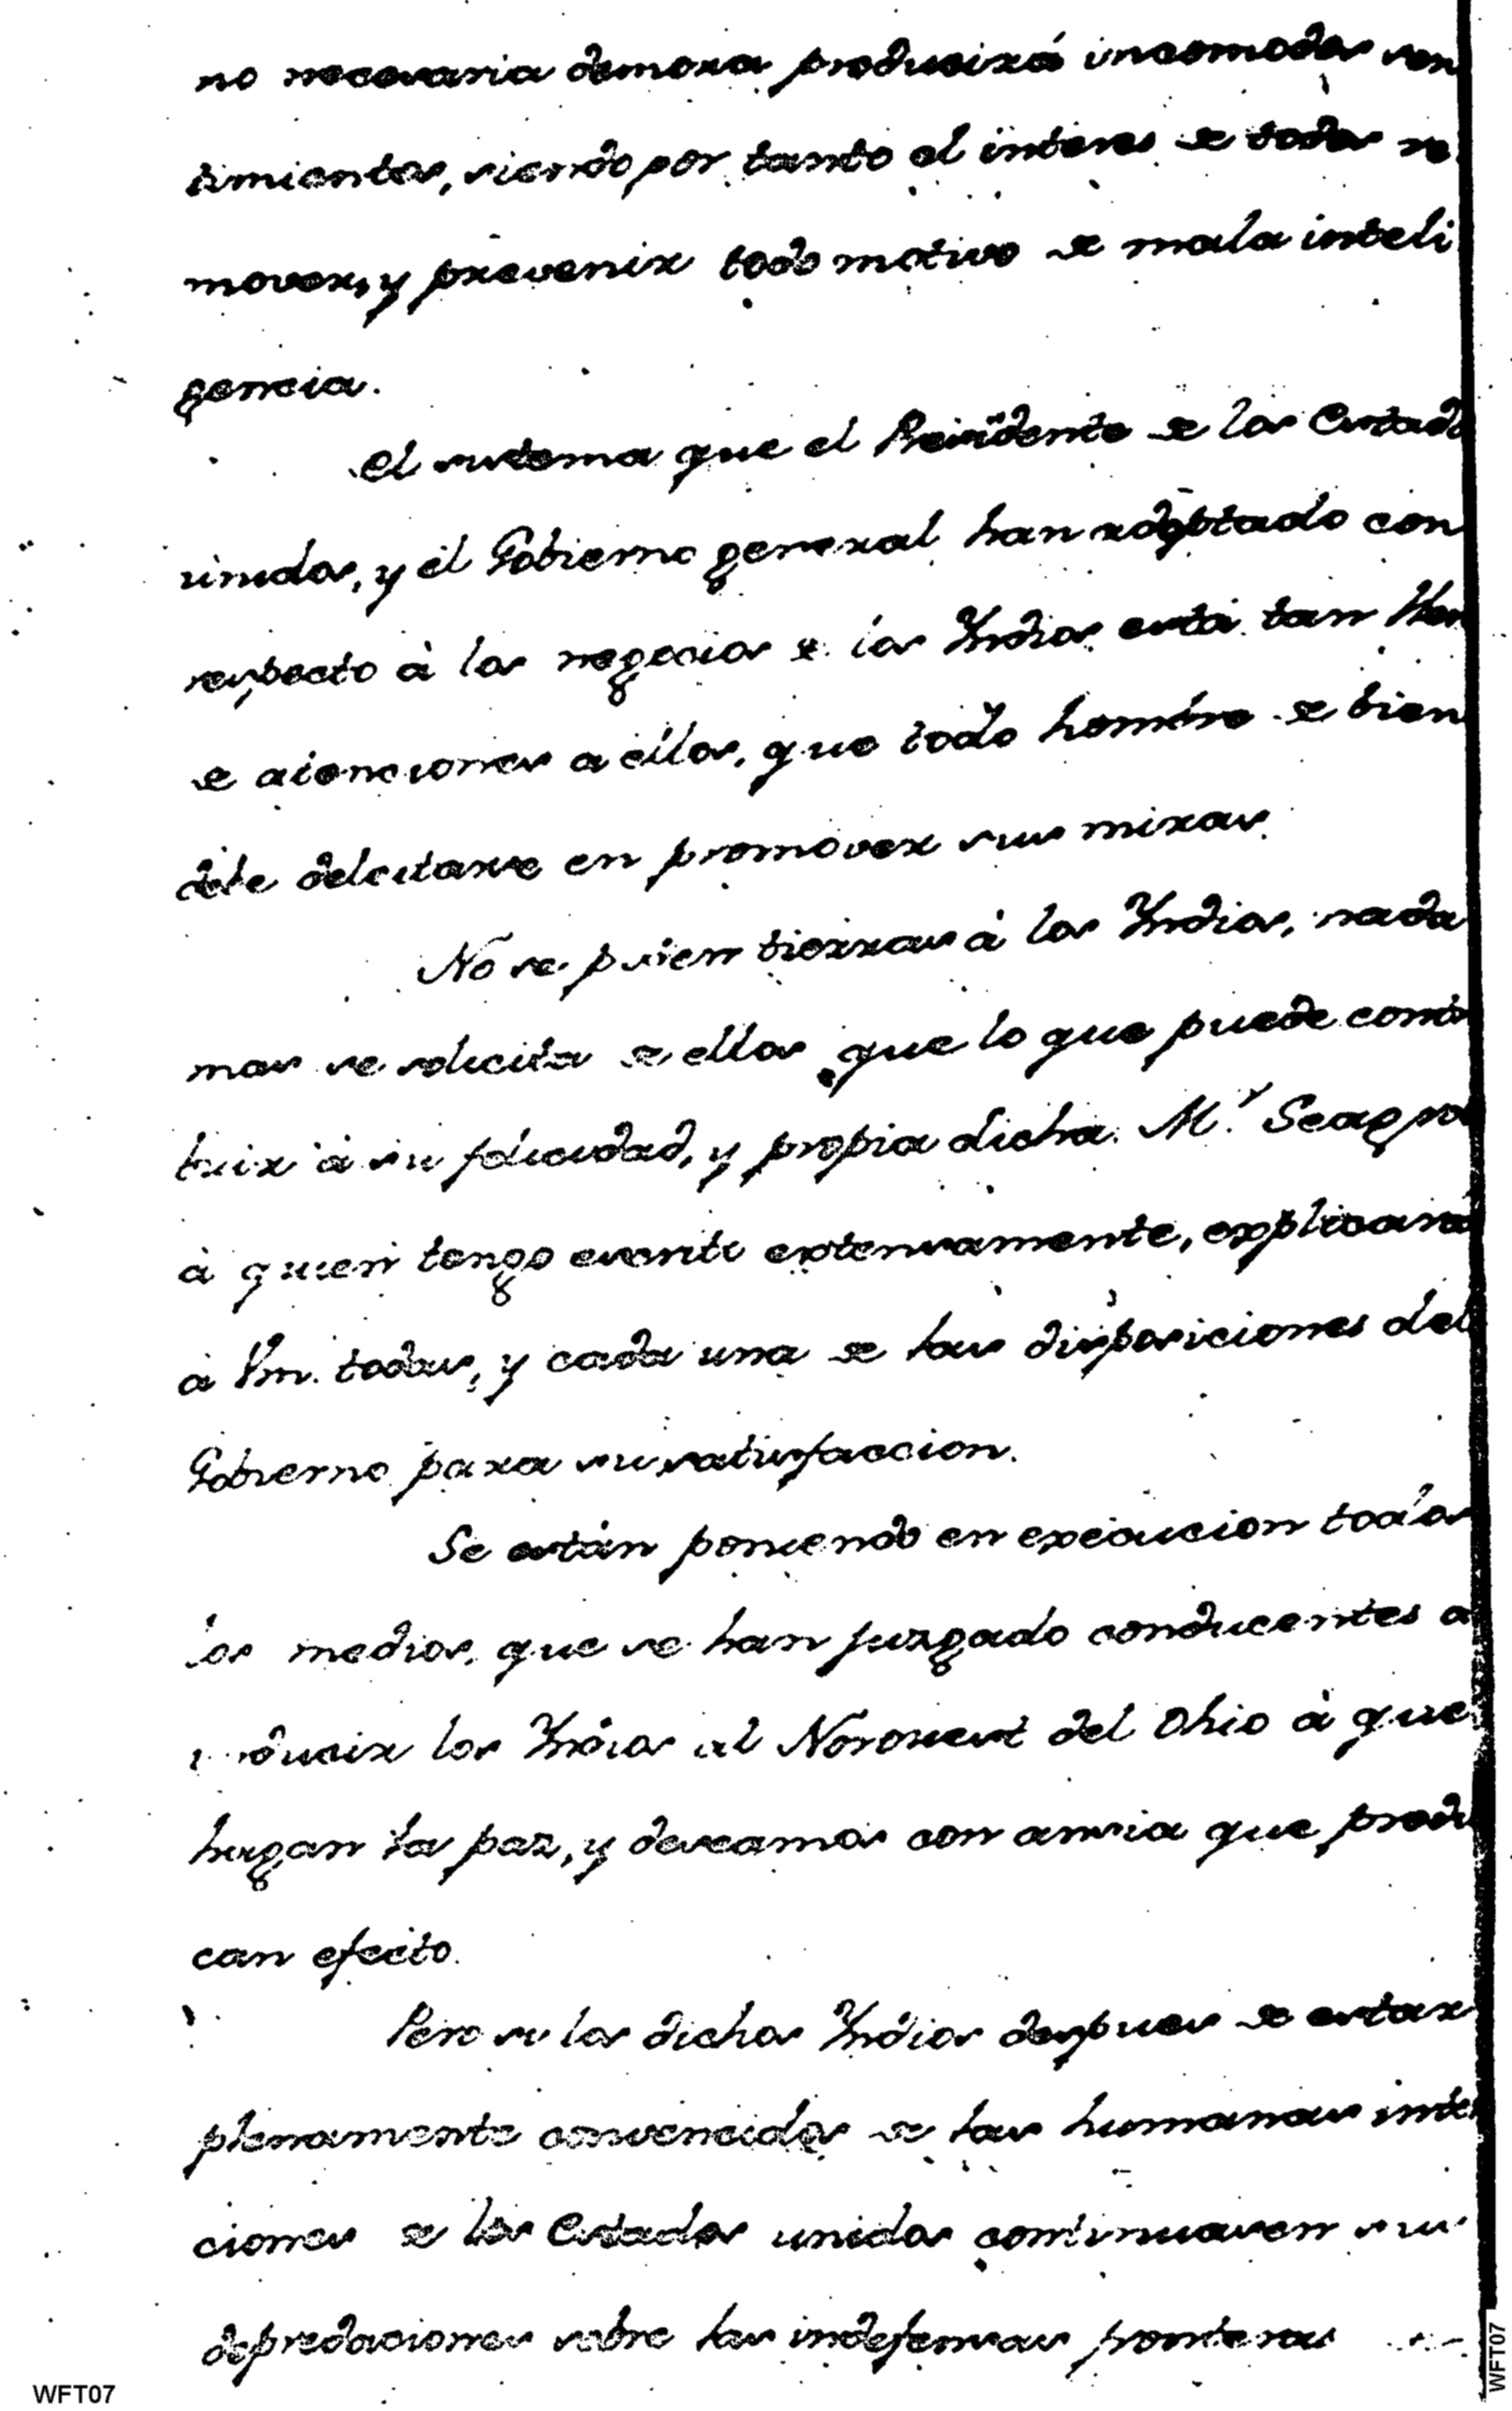 no necesaria demora producirá incomodos sen
timientos, siendo por tanto el interes de todos re
mover, y prevenir todo motivo de mala inteli
gencia.
El sistema que el Presidente de los Estado
unidos, y el Gobierno general han adoptado con
respecto à los negocios de los Yndios está tan llen
de atenciones a ellos, que todo hombre de bien
debe deleitarse en promover sus miras.
No se piden tierras à los Yndios, nada
mas se solicita de ellos que lo que puede contri
buir à su felicidad, y propia dicha. M.r Seagrov
à quien tengo escrito extensamente, explicará
à Vm. todas, y cada una de las disposiciones del
Gobierno para su satisfaccion.
Se están poniendo en execucion todos
los medios, que se han juzgado conducentes a
inducir los Yndios al Norouest del Ohio à que
hagan la paz, y deseamos con ansia que produ
can efecto.
Pero si los dichos Yndios despues de estar
plenamente convencidos de las humanas inten
ciones de los Estados unidos continuasen sus
depredaciones sobre las indefensas fronteras
WFT07
WFT07